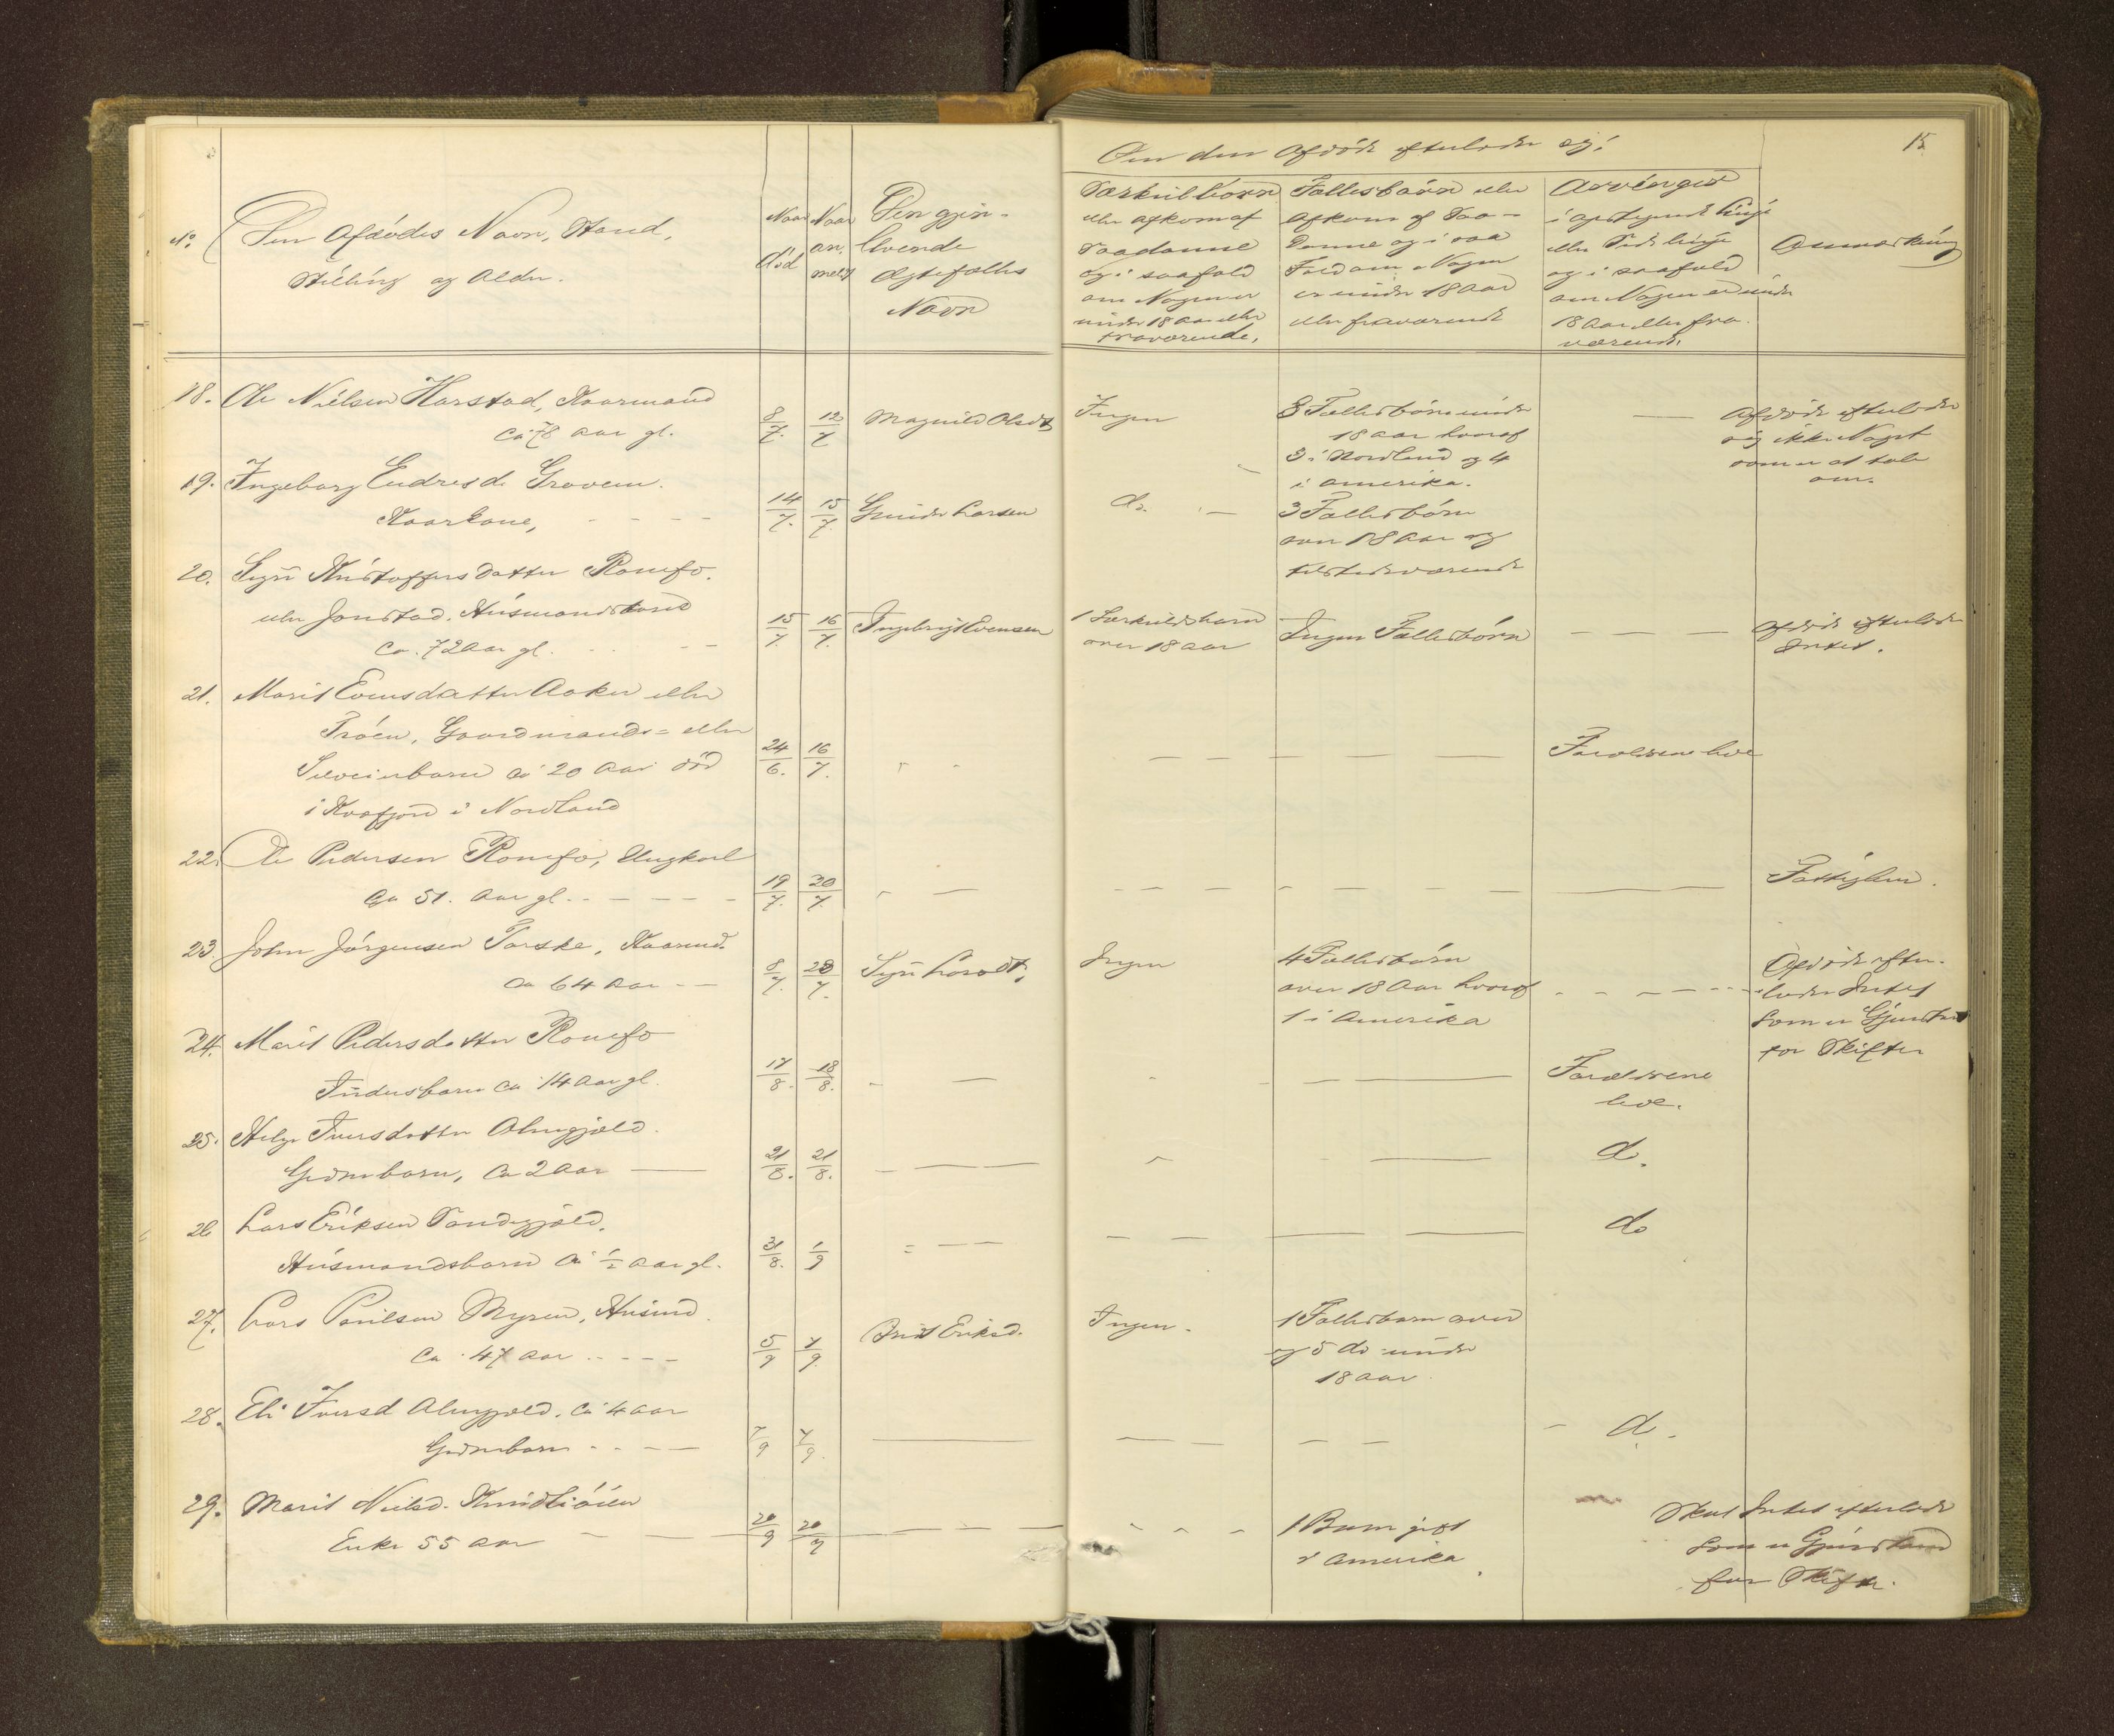 Om den Afdøde efterlader sig:
15
No.
Den Afdødes Navn, Stand,
Stilling og Alder.
Naar
død
Naar
an-
meldt
Den gjen-
levende
Ægtefælles
Navn
Særkuldbørn
eller Afkom af
Saadanne
og i saafald
om Nogen er
under 18 Aar eller
fraværende.
Fællesbørn eller
Afkom af Saa-
danne og i saa
Fald om Nogen
er under 18 Aar
eller fraværende
Arvinger
i opstigende Linje
eller Sidelinje
og i saafald
om Nogen er under
18 Aar eller fra-
værende.
Anmærkning
18. Ole Nielsen Harstad, Kaarmand
ca 78 aar gl.
8/7. 12/7 Magnild Olsdt
Ingen
8 Fællesbørn under
18 aar hvoraf
3 i Nordland og 4
i Amerika.
Afdøde efterlader
sig ikke Noget
som er at tale
om.
19. Ingeborg Endresd. Grovem.
Kaarkone,
14/7. 15/7. Gunder Larsen
do. —
3 Fællesbørn
over 18 Aar og
tilstedeværende
20. Sigri Kristoffersdatter Romfo
eller Jonstad, Husmandskone
ca. 72 aar gl.
15/7. 16/7. Ingebrigt Evensen
1 Særkuldsbarn
over 18 aar
Ingen Fællesbørn
Afdøde efterlader
Intet.
21. Marit Evensdatter Aaker eller
Trøen, Gaardmands- eller
Selveierbarn ca 20 Aar død
i Kvæfjord i Nordland
24/6. 16/7.
Forældrene leve
22. Ole Pedersen Romfo, Ungkarl
ca 51. Aar gl.
19/7. 20/7.
Fattiglem.
23. John Jørgensen Torske, Kaarmd.
ca 64 aar
8/7. 20/7. Sigri Larsdt,
Ingen
4 Fællesbørn
over 18 Aar hvoraf
1 i Amerika
Afdøde efter-
lader Intet
som er Gjenstand
for Skifte
24. Marit Pedersdatter Romfo
Inderstbarn ca 14 Aar gl.
17/8. 18/8.
Forældrene
leve.
25. Helge Iversdatter Almgjeld.
Grdmbarn, ca 2 aar
21/8. 21/8.
do.
26 Lars Eriksen Sandgjeld,
Husmandsbarn ca ½ aar gl.
31/8. 1/9
do
27. Lars Paulsen Myren, Husmd.
ca. 47 aar
5/9 7/9. Brit Eriksd.
Ingen.
1 Fællesbarn over
og 5 do under
18 aar.
28. Eli Iversd Almgjeld, ca 4 aar
Grdmbarn
7/9 7/9.
do.
29. Marit Nielsd. Knudtrøen
Enke 55 aar
20/9 20/9
1 Barn gift
i Amerika.
Skal Intet efterlade
som er Gjenstand
for Skifte.